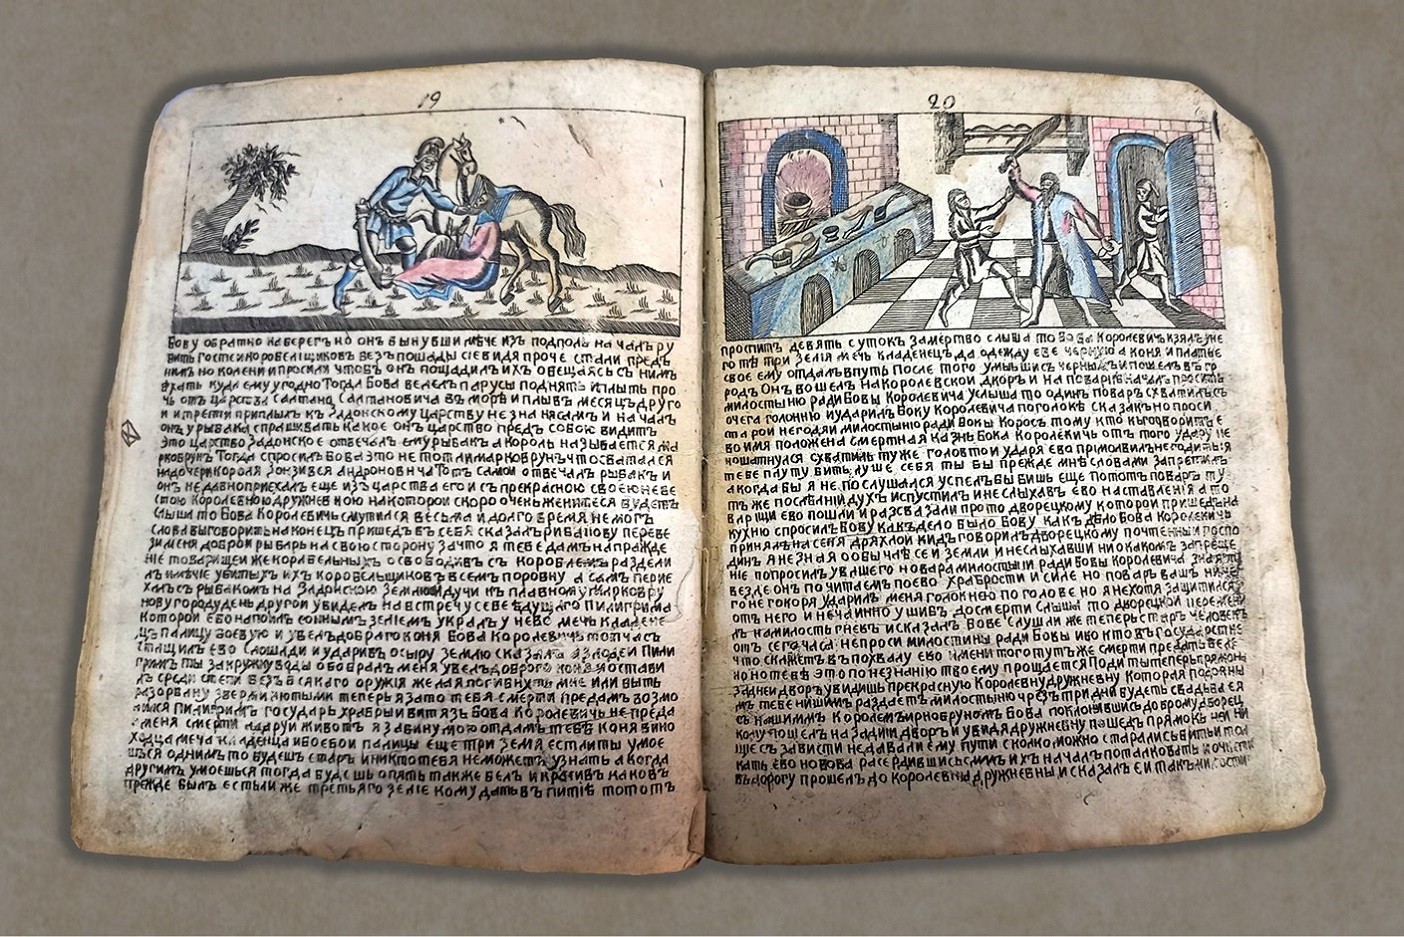 19
Бову обратно на берегъ но онъ вынувши мѣчь изъ подполы началъ ру
бить гостеи коробелщиковъ безъ пошады сіе видя проче стали предъ
нимъ но колени и просили чтобъ онъ пощадилъ ихъ овещаясь съ нимъ
ѣхать куда ему угодно Тогда Бова велелъ парусы поднять и плыть про
чь отъ царства Салтана Салтановича въ морѣ и плывъ месяцъ друго
и и трети приплылъ къ Задонскому царству не зна и началъ
онъ у рыбака спрашивать какое онъ царство предъ собою видитъ
это царство Задонское отвечалъ ему рыбакъ а король называется ма
ркобрунъ Тогда спросилъ Бова это не тотли маркобрунъ что сватался
на дочери короля Зонзивея Андроновича Тотъ самои отвечалъ рыбакъ и
онъ недавно приехалъ еще изъ царства его и съ прекрасною своею неве
стою Королевною дружневною на которои скоро очень женится будетъ
слыша то Бова Королевичь смутился весьма и долго время не могъ
слова выговорить наконецъ пришедъ въ себя сказалъ рибакову переве
зи меня доброи рыбарь на свою сторону за что я тебе дамъ на пражде
ніе товарищеи же корабельныхъ освободивъ съ кораблемъ раздели
лъ имѣніе убитыхъ ихъ коробельщиковъ всемъ поровну а самъ перие
халъ съ рыбакомъ на Задонскою Землю идучи къ главному маркобру
нову городу день другои увиделъ на встречу себе едущаго Пилигрима
которои ево напоилъ соннымъ зелѣемъ укралъ у нево мечь кладене
цъ палицу боевую и увелъ добраго коня Бова Королевичь тотчасъ
стащилъ ево слошади и ударивъ осыру землю сказалъ а злодеи Пили
гримъ ты за кружку воды обобралъ меня увелъ доброго коня и остави
лъ среди степи безъ всякаго оружія желая погибнуть мне или быть
разорвану зверми лютыми теперь я за то тебя смерти предамъ возмо
лился Пилигримъ государь храбрыи витязь Бова Королевичь не преда
и меня смерти а даруи животъ я за вину мою отдамъ тебѣ коня вино
ходца меча кладенца и боевои палицы еще три зелия естли ты умое
шься однимъ то будешъ старъ и никто тебя неможетъ узнать а когда
другимъ умоешься тогда будешь опять также белъ и красивъ каковъ
прежде былъ естьли же третьяго зеліе кому дать въ питіѣ то тотъ
20
проспитъ девять сутокъ замертво слыша то Бова Королевичъ изялъ уне
го тѣ три зелія мечь кладенецъ да одежду ево черную а коня и платье
свое ему отдалъ впуть после того умывшись чернымъ и пошелъ въ го
родъ Онъ вошелъ на королевскои дворъ и на поварнѣ началъ просить
милостыню ради Бовы Королевича услыша то одинъ поваръ схватилъ съ
очега головню и ударилъ Бову Королевича по головѣ сказавъ но проси
старои негодяи милостыню ради Бовы Королевича тому кто выговоритъ е
во имя положена смертная казнь Бова Королевичь отъ того удару не
пошатнулся схватилъ ту же головню и ударя ево примолвилъ негодныи я
тебе плуту бить луше себя ты бы прежде мнѣ словами запретилъ
а когда бы я не послушался успелъ бы бишь еще потомъ поваръ ту
тъ же послѣднии духъ испустилъ и неслыхавъ ево наставленія а то
варищи ево пошли и разсказали про то дворецкому которои пришедъ на
кухню спросилъ Бову какъ дело было Бову какъ дѣло Бова Королевичь
принялъ на сеня дряхлои видъ говорилъ дворецкому почтенныи госпо
динъ я не зная обычаѣ сеи земли и неслыхавши ни о какомъ запреще
ніе попросилъ у вашего повара милостыни ради Бовы Королевича зная что
везде онъ почитаемъ по ево храбрости и силе но поваръ вашъ ниче
го не говоря ударилъ меня головнею по голове но я нехотя защитился
отъ него и нечаинно ушибъ досмерти слыша то дворецкои пережени
лъ на милость гневъ и сказалъ Бове слушаи же теперь старъ человекъ
отъ сего часа непроси милостины ради Бовы ибо кто въ государстве
что скажетъ въ похвалу ево имени того тутъ же смерти предать веле
но но тебѣ это по незнанію твоему прощается Поди ты теперь прямо на
заднеи дворъ увидишь прекрасную Королевну дружневну которая подобны
мъ тебе нишимъ раздаетъ милостыню чрезъ три дни будеть свадьба ея
съ нашимъ Королемъ маркобруномъ Бова поклонившись доброму дворец
кому пошелъ на заднии дворъ и увидя дружневну пошедъ прямо къ неи ни
щіе съ зависти недавали ему пути сколко можно старались бить и тол
кать ево но Бова расердившись съ ними ихъ началъ поталковать и очистя
въ дорогу прошелъ до королевны дружневны и сказалъ еи такъ милости